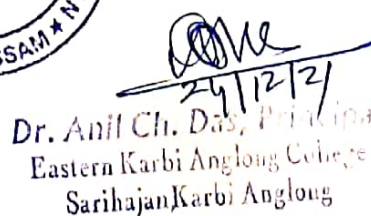 SSAM * N
24/12/21
Dr. Anil Ch. Das, Principa
Eastern Karbi Anglong College
Sarihajan, Karbi Anglong